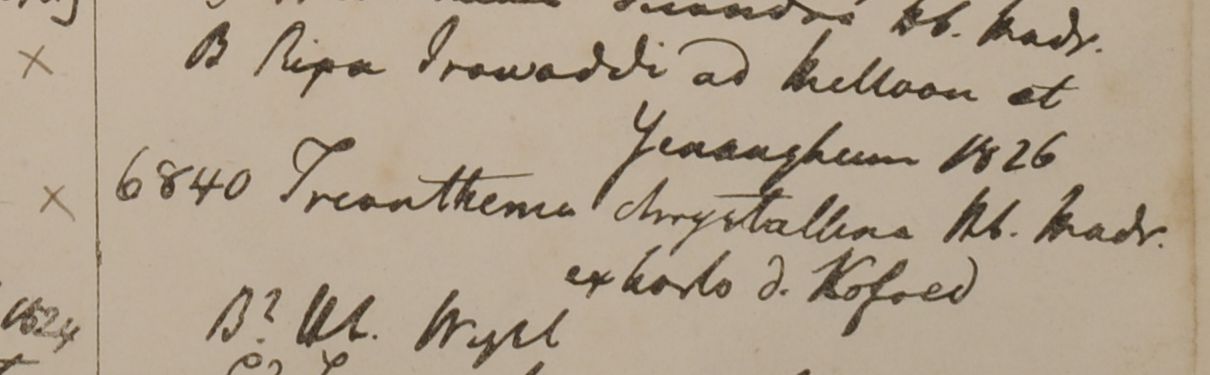 Hb. Madr.
B Ripa Irawaddi ad Melloon et
Yenangheum 1826
6840 Trianthema chrystallina Hb. Madr.
ex horto d. Kofoed
B? Hb. Wight
1824